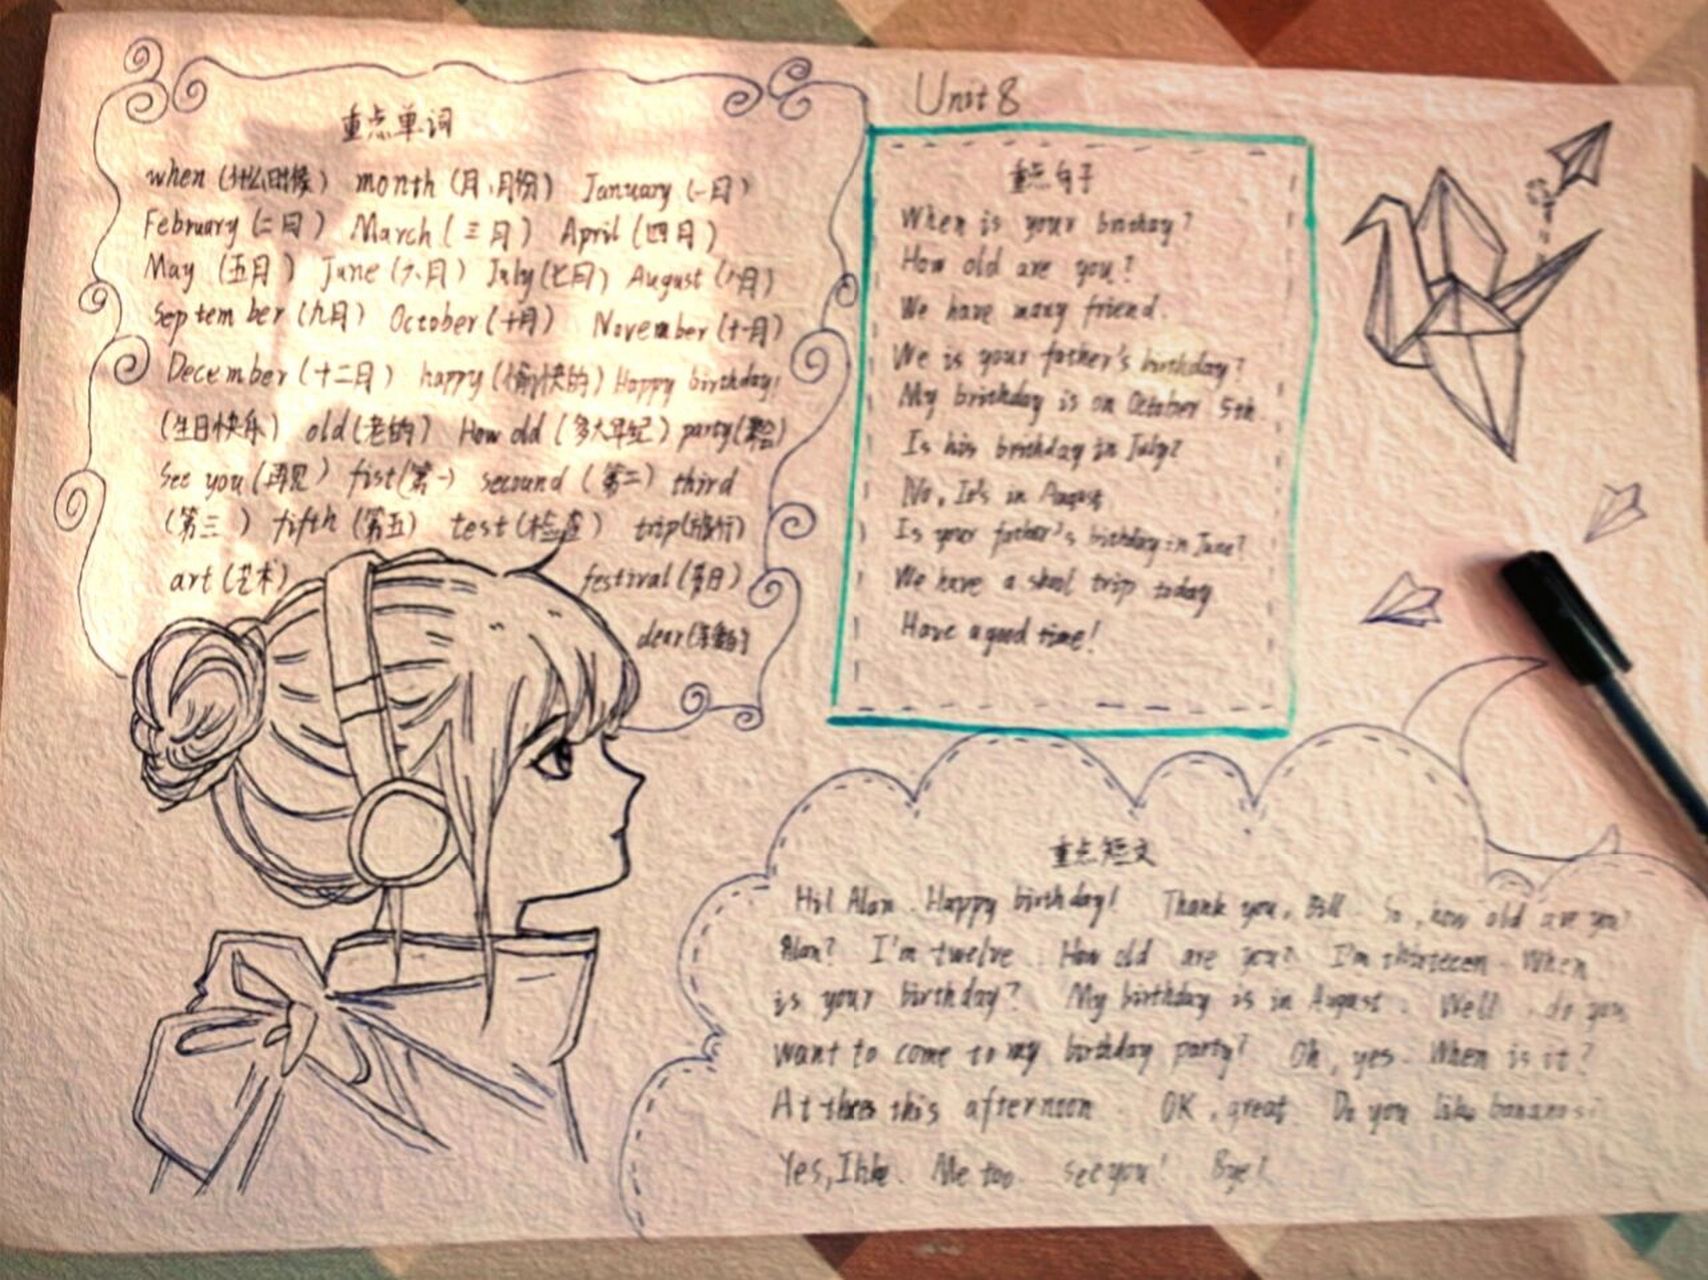 重点单词
when (什么时候) month (月、月份) January (一日)
February (二月) March (三月) April (四月)
May (五月) June (六月) July (七月) August (八月)
September (九月) October (十月) November (十一月)
December (十二月) happy (愉快的) Happy birthday!
(生日快乐) old (老的) How old (多大年纪) party (聚会)
See you (再见) fist (第一) secound (第二) third
(第三) fifth (第五) test (检查) trip (旅行)
art (艺术) festival (节日)
dear (亲爱的)
Unit 8
重点句子
When is your birthday?
How old are you?
We have many friend.
We is your father's birthday?
My brithday is on October 5th.
Is his brithday in July?
No, It's in August.
Is your father's birthday in June?
We have a trip today
Have a good time!
重点短文
Hi! Alan. Happy birthday! Thank you, Bill. So, how old are you
Alan? I'm twelve. How old are you? I'm When
is your birthday? My birthday is in August. Well, do you
want to come to my birthday party? Oh, yes. When is it?
At this afternoon. OK, great. Do you like bananas?
Yes, I Me too. see you! Bye!